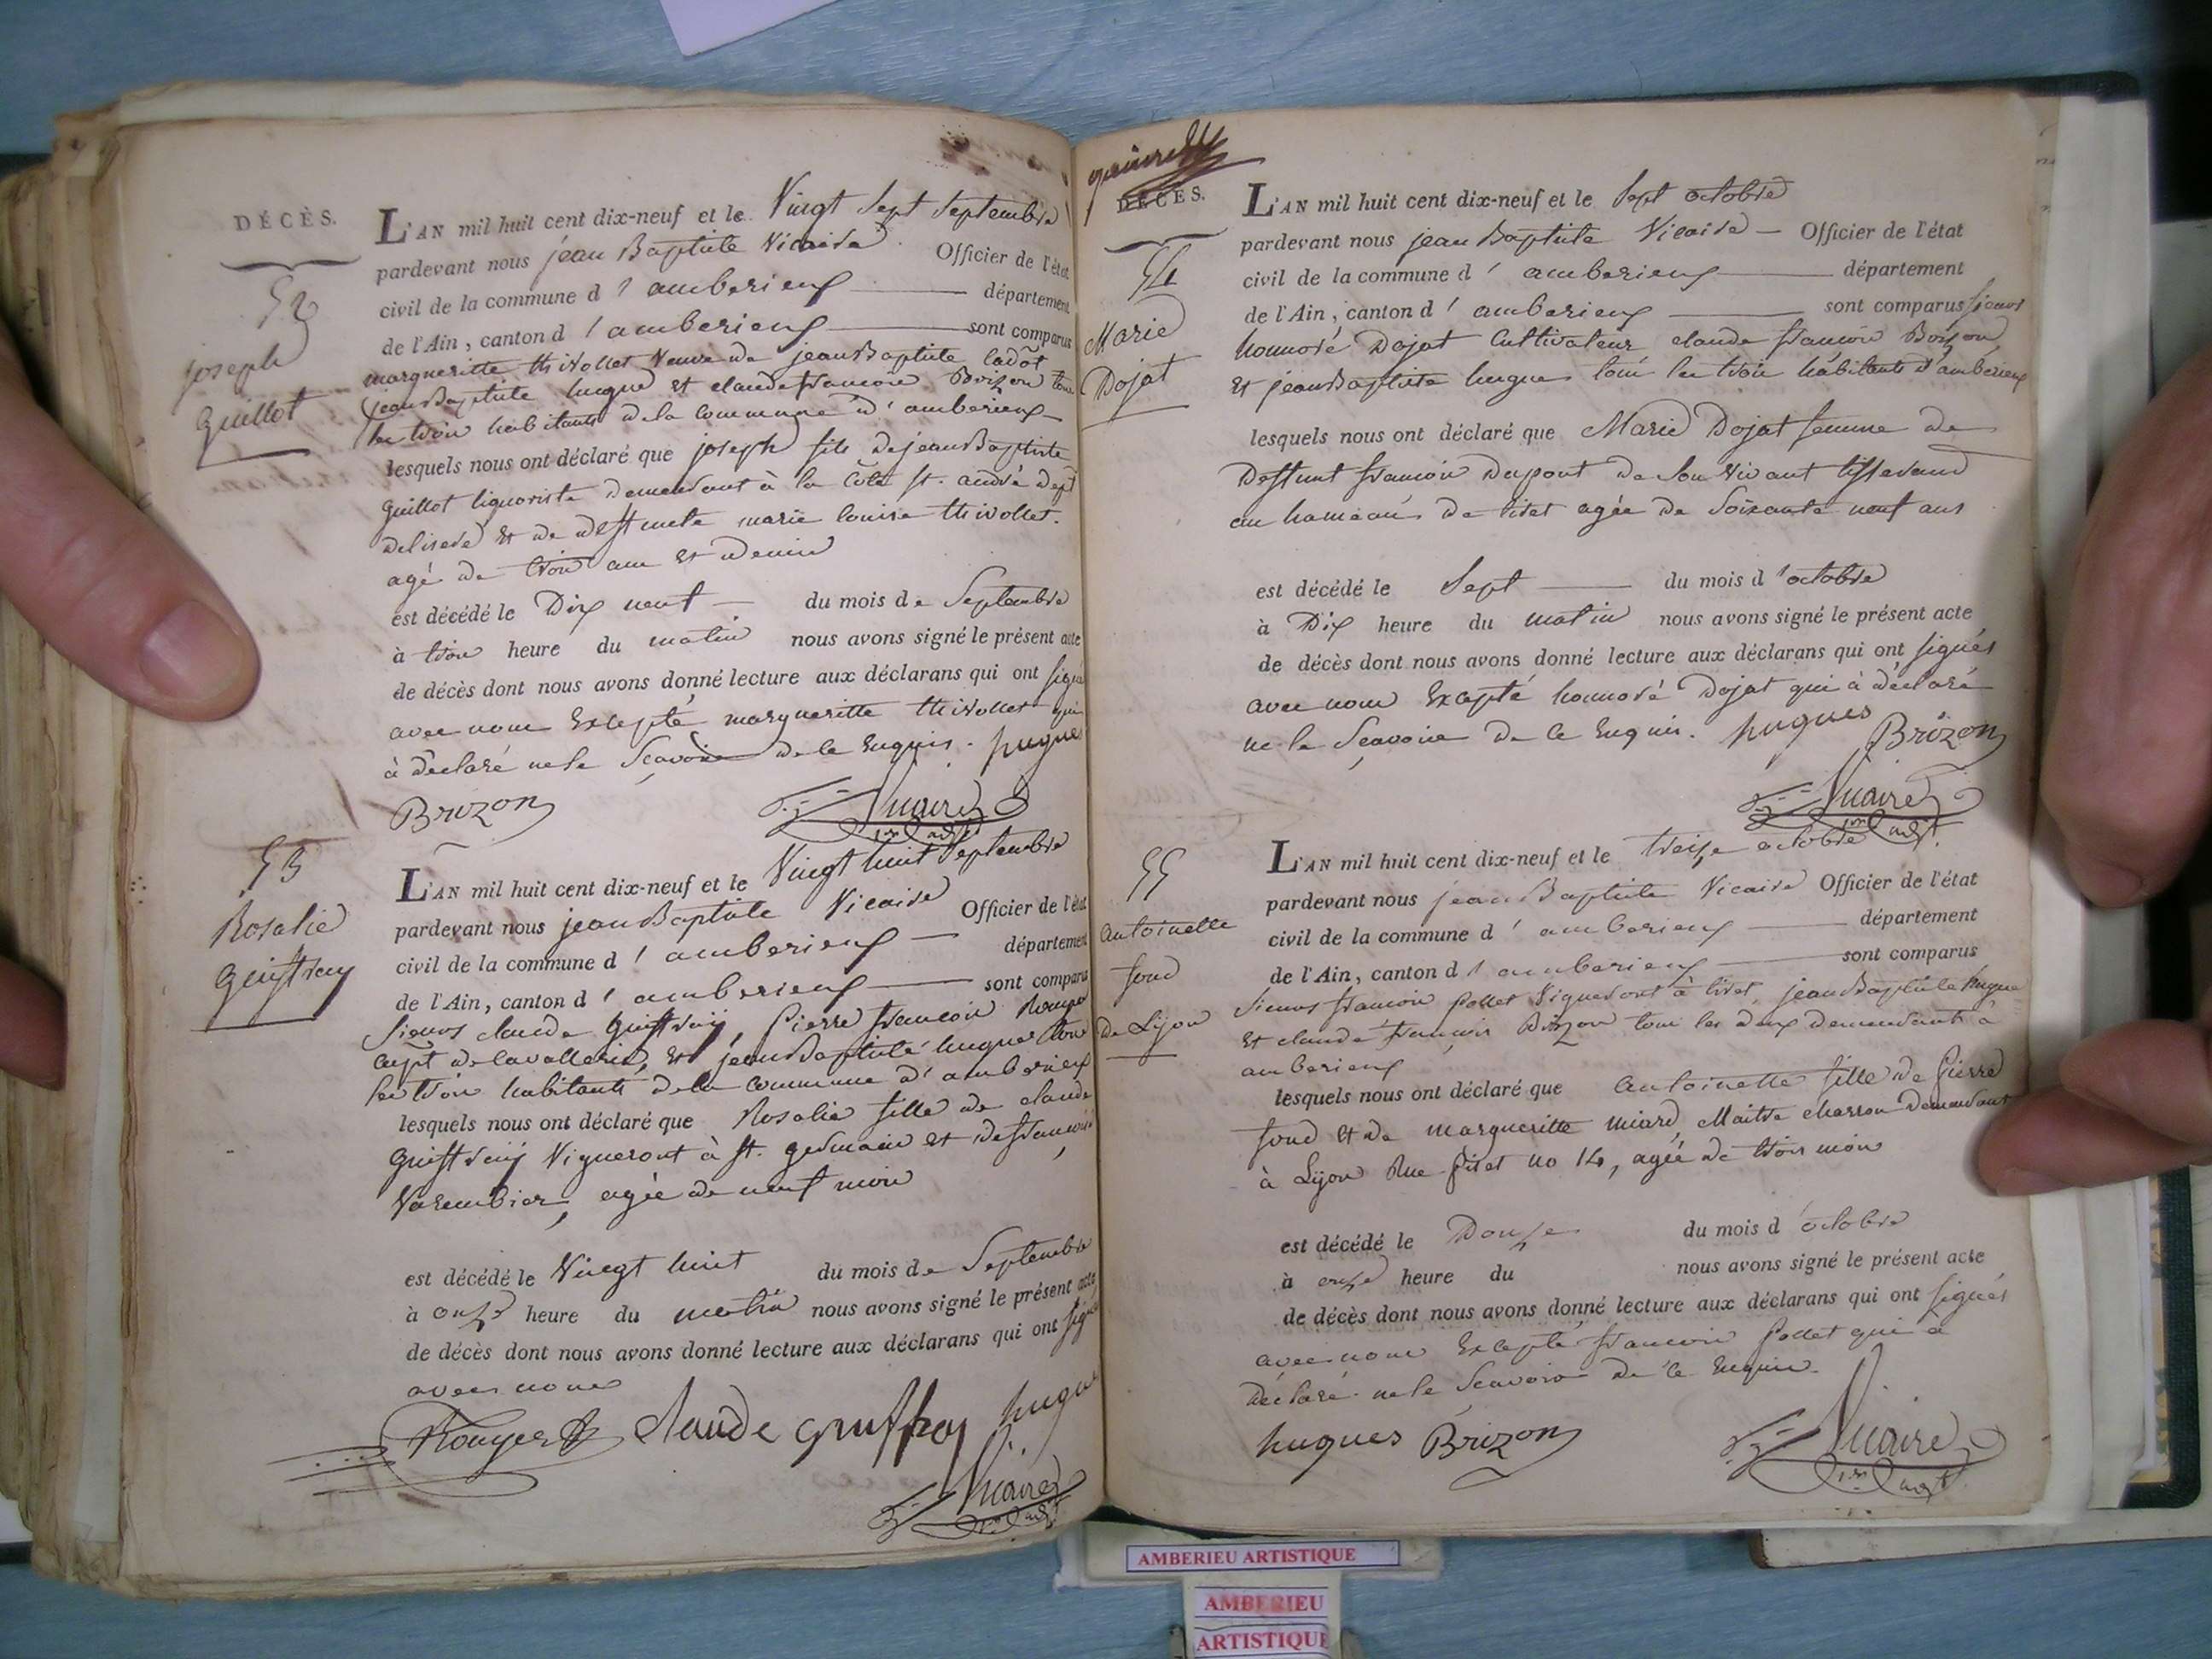 DÉCÈS.
52
joseph
guillot
L'AN mil huit cent dix-neuf et le Vingt sept septembre
pardevant nous jean Baptiste Vicaire Officier de l'état
civil de la commune d' amberieux département
de l'Ain, canton d' amberieux sont comparus
margueritte thivollet veuve de jean Baptiste
jean Baptiste hugue et claude francois Brizon tous
les trois habitants de la commune d'amberieux
lesquels nous ont déclaré que joseph fils de jean Baptiste
guillot liquoriste demeurant à la Côte st. andré dept
delisere et de deffuncte marie louise thivollet.
agé de trois ans et demie
est décédé le Dix neuf du mois de Septembre
à trois heure du matin nous avons signé le présent acte
de décès dont nous avons donné lecture aux déclarans qui ont signé
avec nous Excepté margueritte thivollet qui
à déclaré ne le sçavoir de ce Enquis. hugues
Brizon Vicaire
53
Rosalie
guiffrey
L'AN mil huit cent dix-neuf et le Vingt huit Septembre
pardevant nous jean Baptiste Vicaire Officier de l'état
civil de la commune d' amberieux département
de l'Ain, canton d' amberieux sont comparus
sieurs claude guiffreÿ, Pierre francois Rouyer
capt de cavallerie, et jean Baptiste hugues tous
les trois habitants de la commune d'amberieux
lesquels nous ont déclaré que Rosalie fille de claude
guiffreÿ Vigneront à st. germain et de francoise
Varembier, agée de neuf mois
est décédé le Vingt huit du mois de Septembre
à onze heure du matin nous avons signé le présent acte
de décès dont nous avons donné lecture aux déclarans qui ont signé
avec nous
Rouyer claude guiffrey hugues
Vicaire
DÉCÈS.
54
Marie
Dojat
L'AN mil huit cent dix-neuf et le Sept octobre
pardevant nous jean Baptiste Vicaire Officier de l'état
civil de la commune d' amberieux département
de l'Ain, canton d' amberieux sont comparus sieurs
honnoré Dojat Cultivateur claude francois Brizon
et jean Baptiste hugues tous les trois habitants d'amberieux
lesquels nous ont déclaré que Marie Dojat femme de
Deffunt francois Dupont de son Vivant tisserand
au hameau de tiret agée de soixante neuf ans
est décédé le Sept du mois d'octobre
à Dix heure du matin nous avons signé le présent acte
de décès dont nous avons donné lecture aux déclarans qui ont signés
avec nous Excepté honnoré Dojat qui à déclaré
ne le sçavoir de ce Enquis. hugues Brizon
Vicaire
55
antoinette
fond
De Lijon
L'AN mil huit cent dix-neuf et le treize octobre
pardevant nous jean Baptiste Vicaire Officier de l'état
civil de la commune d' amberieux département
de l'Ain, canton d' amberieux sont comparus
sieurs francois pollet Vigneront à tiret, jean Baptiste hugue
et claude francois Brizon tous les deux demeurant à
amberieux
lesquels nous ont déclaré que antoinette fille de Pierre
fond et de margueritte miard, Maitre charron demeurant
à Lijon Rue no 14, agée de trois mois
est décédé le Douze du mois d'octobre
à onze heure du nous avons signé le présent acte
de décès dont nous avons donné lecture aux déclarans qui ont signés
avec nous Excepté francois pollet qui à
déclaré ne le sçavoir de ce Enquis.
hugues Brizon Vicaire
AMBERIEU ARTISTIQUE
AMBERIEU
ARTISTIQUE